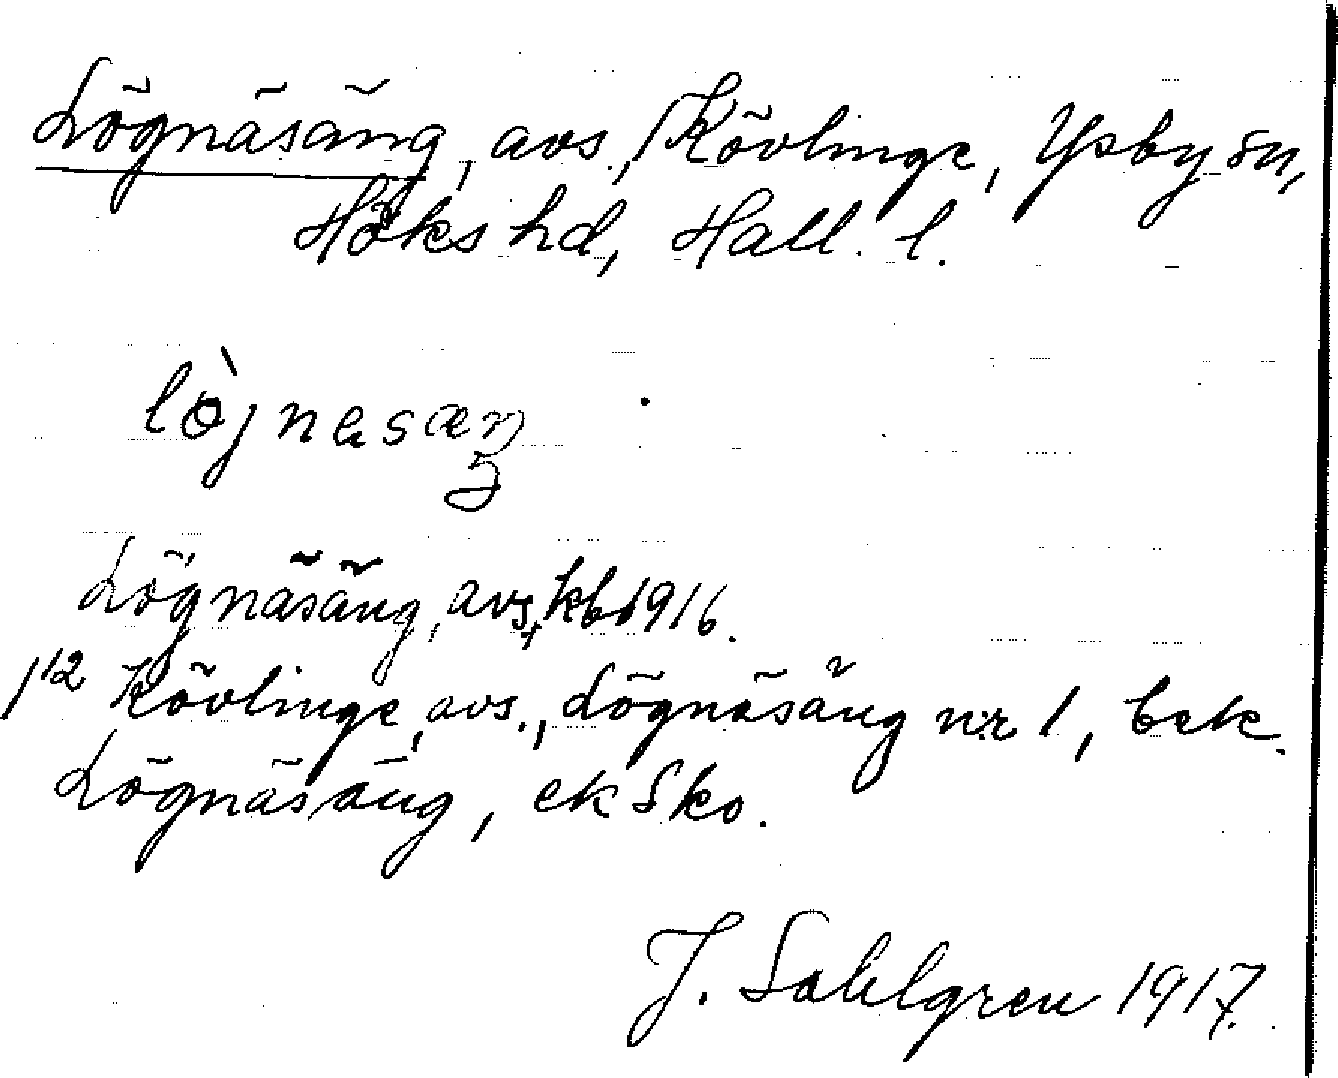 Lögnäsäng, avs., Kövlinge, Ysby sn,
Höks hd, Hall. l.
lö̀jnasæŋ
Lögnäsäng, avs, kb 1916.
1/12 Kövlinge, avs., Lögnäsäng nr 1, bek.
Lögnäsäng, ek Sko.
J. Sahlgren 1917.